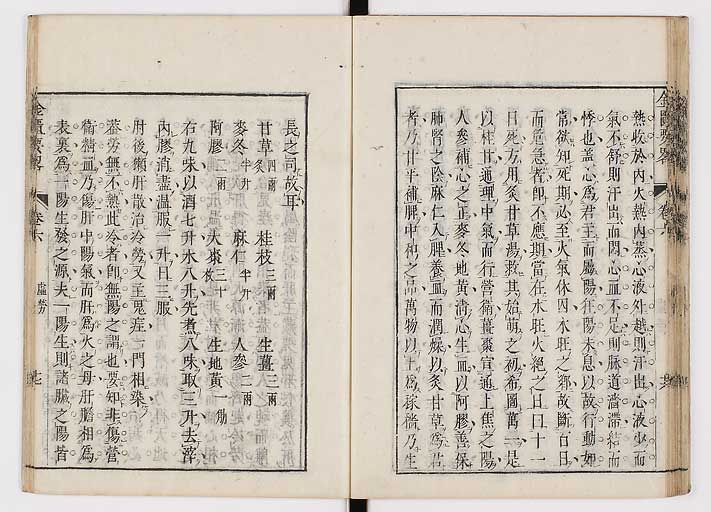 熱收於內火熱內蒸心液外越則汗出心液少而
氣不舒則汗出而悶心血不足則脉道濇滯結而
悸也蓋心為君主而臟陽在陽未息以故行動如
常欲知死期必至火氣休囚水旺之鄉故斷百日
而危急者卽不應期當在水旺火絕之日曰十一
日死方用炙甘草湯救其始萌之初希圖萬一是
以桂甘通理中氣而行營衛薑棗宣通上焦之陽
人參補心之正麥冬地黃清心生血以阿膠善保
肺腎之陰麻仁入脾養血而潤燥以炙甘草為君
者乃甘平補脾中和之品萬物以土為稼穡乃生
金匱要畧
卷六
長之司故耳
甘草炙四兩 桂枝三兩 生薑三兩
麥冬半升 麻仁半升 人參二兩
阿膠二兩 大棗三十枚 生地黃一觔
右九味以酒七升水八升先煮八味取三升去滓
內膠消盡溫服一升日三服
肘後獺肝散治冷勞又主鬼疰一門相染
蓋勞無不熱此冷者卽無陽之謂也要知非傷營
衛精血乃傷肝中陽氣而肝為火之母肝膽相為
表裏為一陽生發之源夫一陽生則諸臟之陽皆
金匱要畧
卷六
虛勞